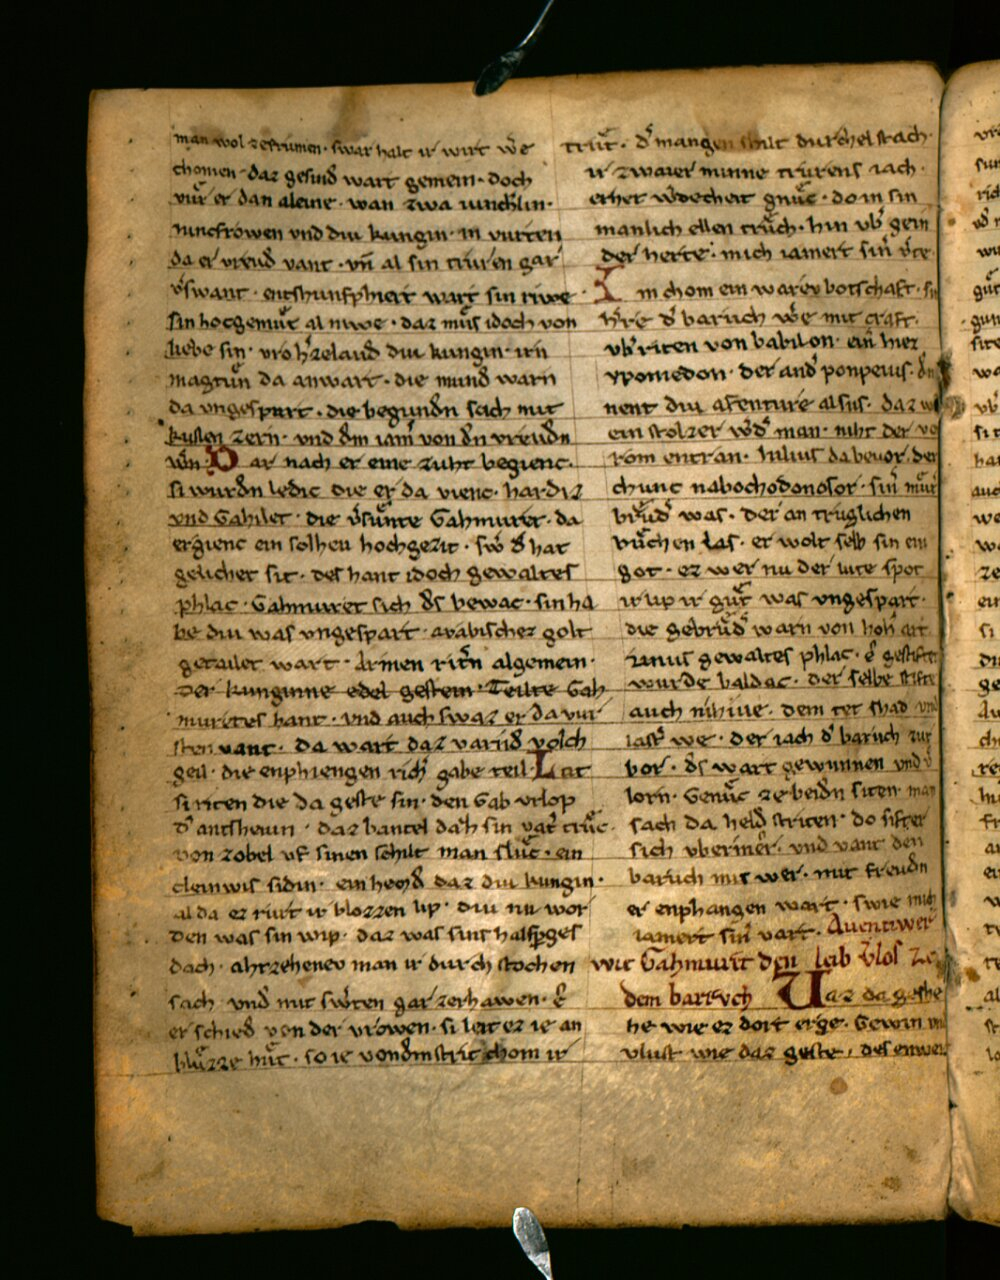 man wol zefrumen · swar halt ir wirt wͤe
chomen · daz gesind wart gemein · doch
vuͤr er dan aleine · wan zwa iunchͤlin ·
iuncfrowen vnd diu kungin · in vurten
da er vreud vant · vn̄ al sin truren gar
v̓swant · entshunfphiert wart sin riwe ·
sin hocgemuͤt al niwe · daz muͤs idoch von
liebe sin · vro h̓zelaud diu kungin · irn
magtuͤm da anwart · die mund warn
da vngespart · die begundn sich mit
kussen zern · vnd dem iam̓ von dn vreudn
wern · Dar nach er eine zuht begienc ·
si wurdn ledic die er da vienc · hardiz
vnd Gahilet · die v̓sunte Gahmuret · da
ergienc ein solheu hochgezit · sw̓ d̓ hat
gelicher sit · des hant idoch gewaltes
phlac · Gahmuret sich des bewac · sin ha
be diu was vngespart · arabischez golt
getailet wart · armen ritn̄ algemein ·
Der kunginne edel gestein · Teilte Gah
muretes hant · vnd auch swaz er da vur
sten vant · da wart daz varnd volch
geil · die enphiengen rich̓ gabe teil · Lat
si riten die da geste sin · den Gab vrlop
d̓ antshevin · daz bantel dah sin vat̓ truͤc ·
von zobel vf sinen schilt man sluͤc · ein
cleinwis sidin · ein hemd daz diu kungin ·
al da ez ruͤrt ir blozzen lip · diu nu wor
den was sin wip · daz was sins halsperges
dach · ahzehenev man ir durch stochen
sach · vnd mit sw̓ten gar zerhawen · e͛
er schied von der vrowen · si leit ez ie an
bluͤzze huͤt · so ie von dem strit chom ir
truͤt · d̓ mangen shilt durchel stach ·
ir zwaier minne triwens iach ·
erhet w̓dechert gnuͤc · do in sin
manlich ellen truͤch · hin vb̓ gein
der herte · mich iamert sin̓ v̓te
Im chom ein warev botschaft · sin
h̓re d̓ baruch wͤe mit craft ·
vb̓riten von babilon · ein̓ hiez
ypomedon · der and̓ ponpeius · dn
nent diu afenture alsus · daz w
ein stolzer w̓d man · niht der vo
rom entran · Iulius da bevor · der
chunc nabochodonosor · sin̓ muͤt
bruͤd̓ was · der an truglichen
buͤchen las · er wolt selb sin ein
got · ez wer nu der lute spot
ir lip ir guͤt was vngespart ·
die gebruͤd̓ warn von hoh̓ art
ianus gewaltes phlac · e͛ gestifte
wurde baldac · der selbe stifte
auch niniue · dem tet shad vnd
last̓ we · der iach d̓ baruch zur
bor · des wart gewunnen vnd v̓
lorn · Genuͤc ze beidn siten man
sach da held striten · do sister
sich vbermer · vnd vant den
baruch mit wer · mit freudn
er enphangen wart · swie mich
iamert sin̓ vart · Auentiwer
wie Gahmuret den leib v̓los ze
dem baruch Waz da geshe
he wie ez dort erge · Gewin vnd
vlust wie daz geste · des enweiz